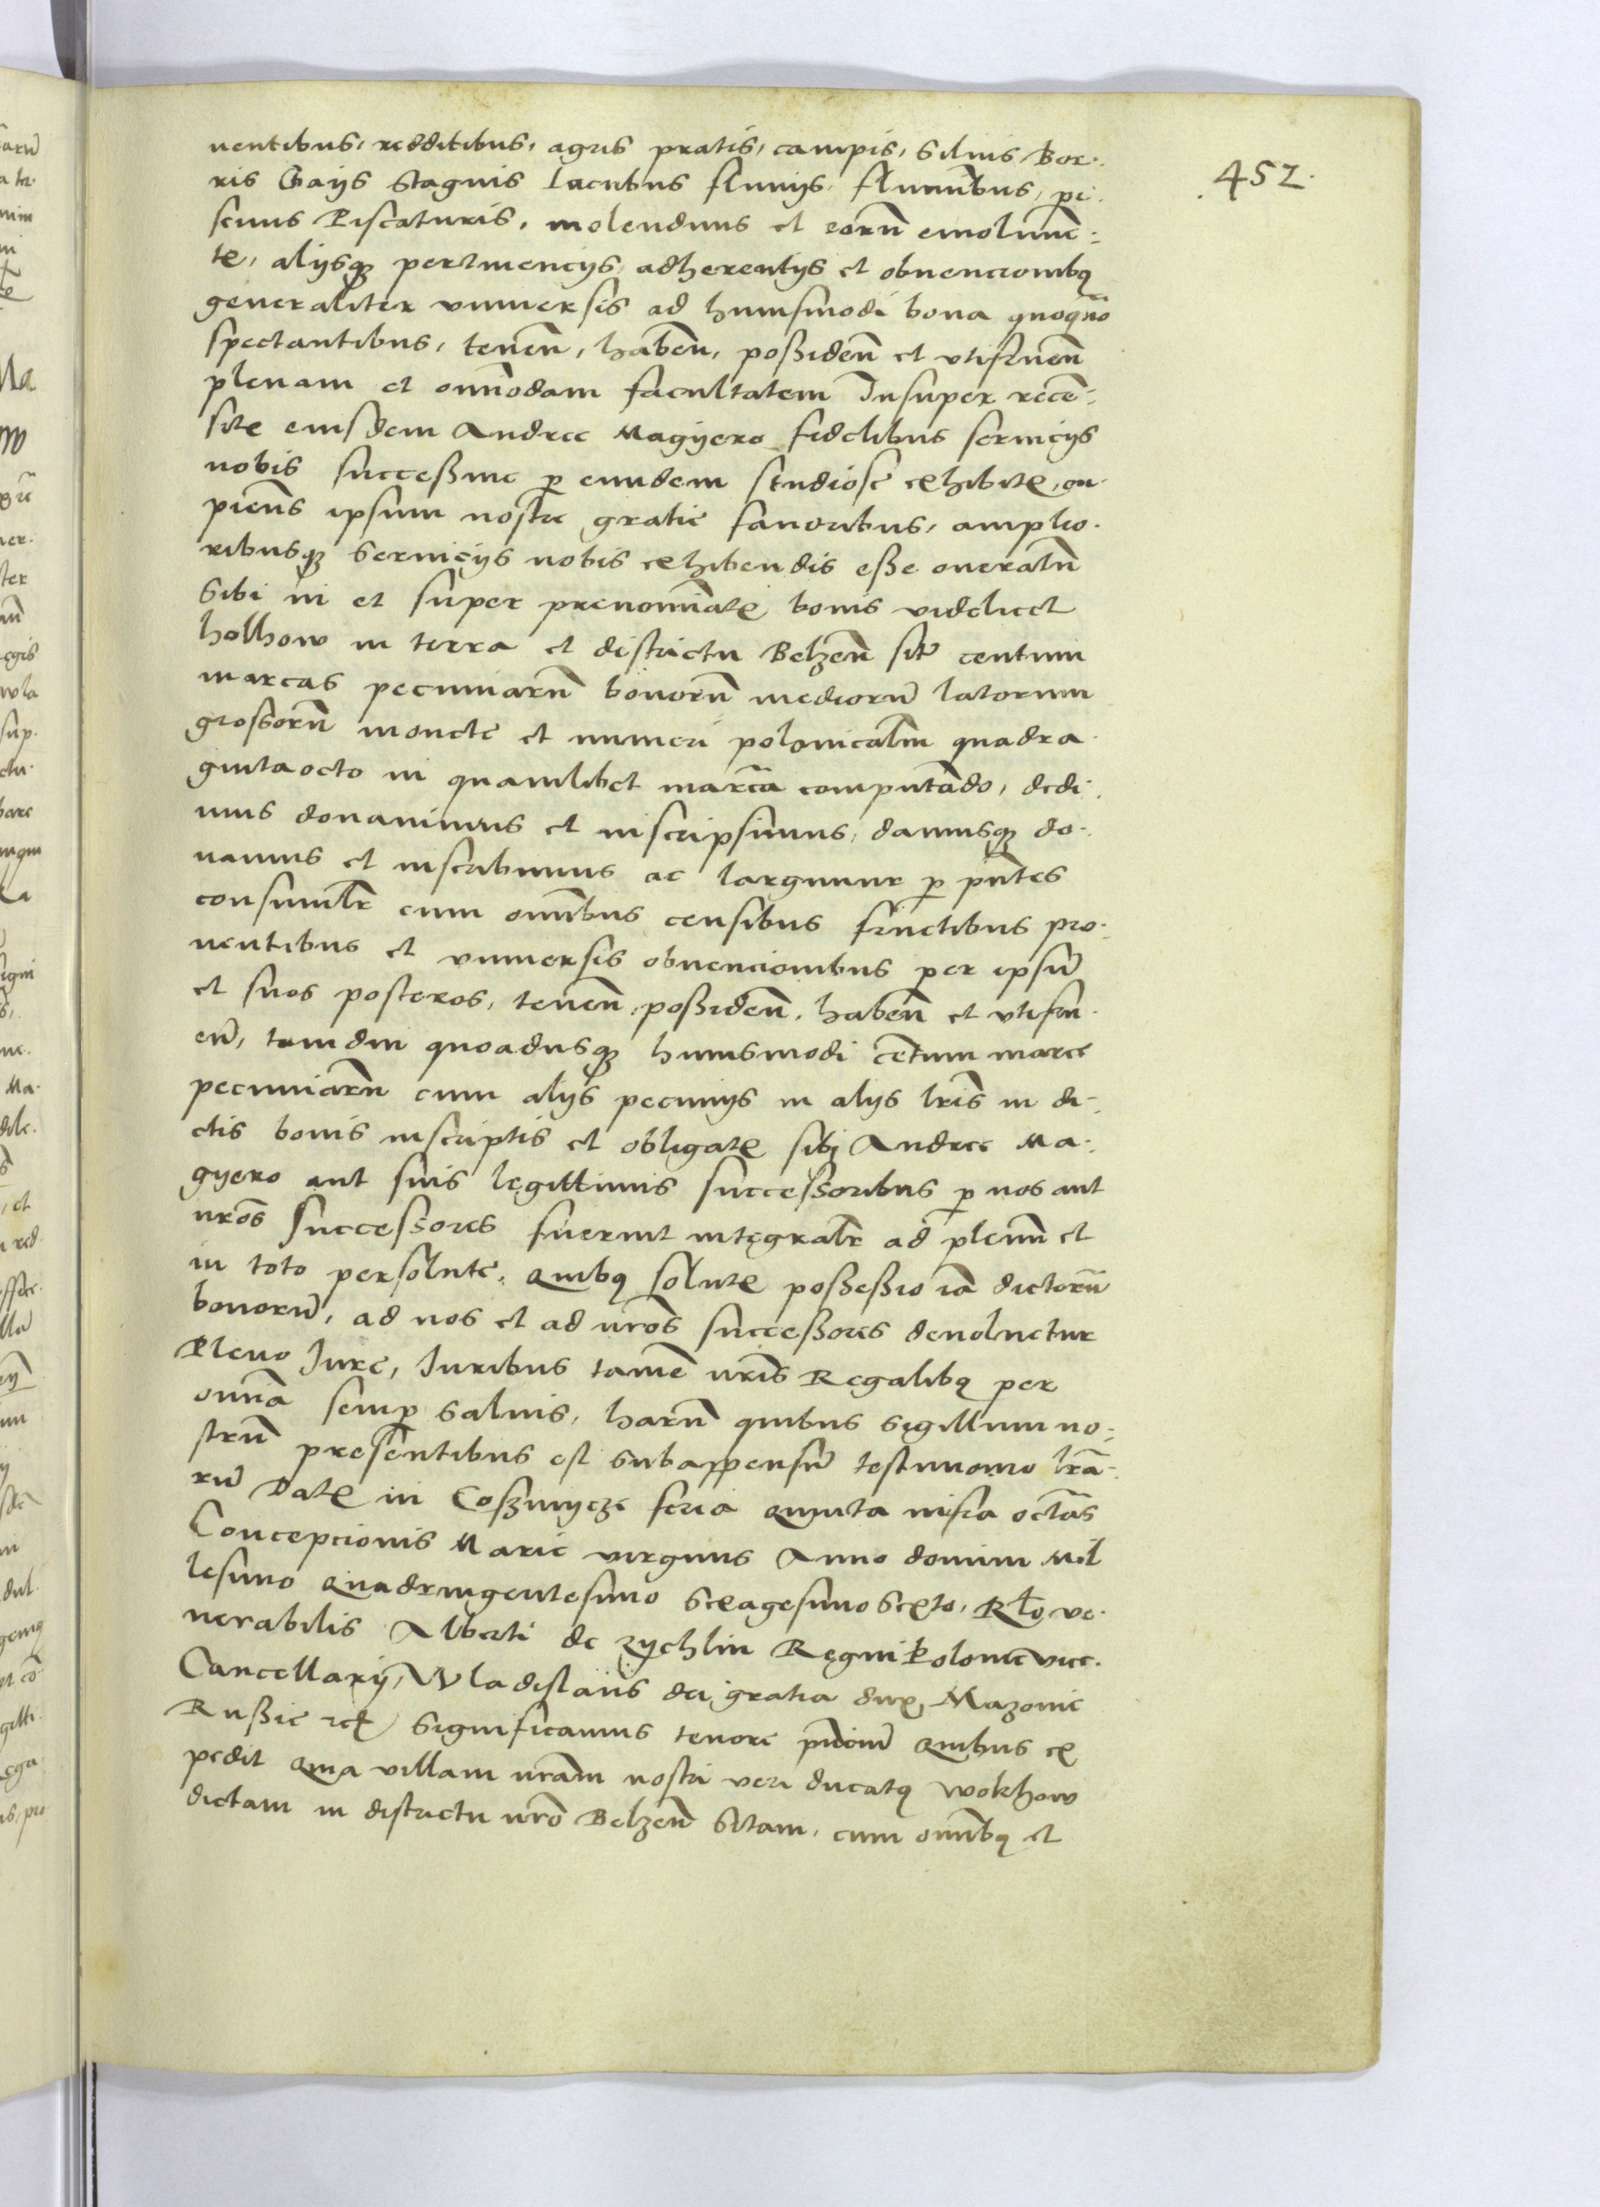 452.
uentibus, redditibus, agris pratis, campis, Siluis Bor-
ris Gaijs Stagnis Lacubus fluuijs, fluminibus, pi-
scinis Piscaturis, molendinis et eorũ emolumẽ-
tę, alijsq pertinencijs, adherentijs et obuencionibq
generaliter vniuersis ad huiusmodi bona quoqmõ
spectantibus, teneñ, habeñ, poßideñ et vtifrueñ
plenam et omĩodam facultatem Insuper recẽ-
sitę eiusdem Andree Magyero fidelibus seruicijs
nobis succeßiue p eundem studiose exhibitę, cu-
pieñs ipsum nostre gratie fauoribus, amplio-
ribusq seruicijs nobis exhibendis eße oneratũ
Sibi in et super prenomĩatę bonis videlicet
holhow in terra et districtu Belzeñ sitę centum
marcas pecuniarũ bonorũ mediorũ latorum
grossorũ monete et numeri polonicalm̃ quadra-
gintaocto in quamlibet marcã computãdo, dedi-
mus donauimus et inscripsimus, damusq do-
namus et inscribimus ac largimur p pñtes
consimilr̃ cum omĩbus censibus fructibus pro-
uentibus et vniuersis obuencionibus per ipsũ
et suos posteros, teneñ, poßideñ, habeñ et vtifru-
eñ, tamdiu quoadusq huiusmodi cẽtum marce
pecuniarũ cum alijs pecunijs in alijs lr̃is in di-
ctis bonis inscriptis et obligatę sibi Andree Ma-
gyero aut suis legittimis successoribus p nos aut
nr̃os successores fuerint integralr̃ ad plenũ et
in toto persolute, quibq solutę poßeßio iã dictorũ
bonorũ, ad nos et ad nr̃os succeßores deuoluetur
Pleno Iure, Iuribus tamẽ nr̃is Regalibq per
omĩa semp saluis, harũ quibus sigillum no-
strũ presentibus est subappensũ testimonio lr̃a-
rũ Datę in Coszmycze feria quinta infra octãs
Concepcionis Marie virginis Anno domini Mil
lesimo quadringentesimo sexagesimo sexto, Rl̃o ve-
nerabilis Alberti de zychlin Regni Polonie vice-
Cancellarij, Wladislaus dei gratia dux Mazouie
Rußie zc̃ significamus tenore pñcium quibus ex
pedit quia villam nr̃am nostri veri ducatq wokhow
dictam in districtu nr̃o Belzeñ sitam, cum omĩbq et